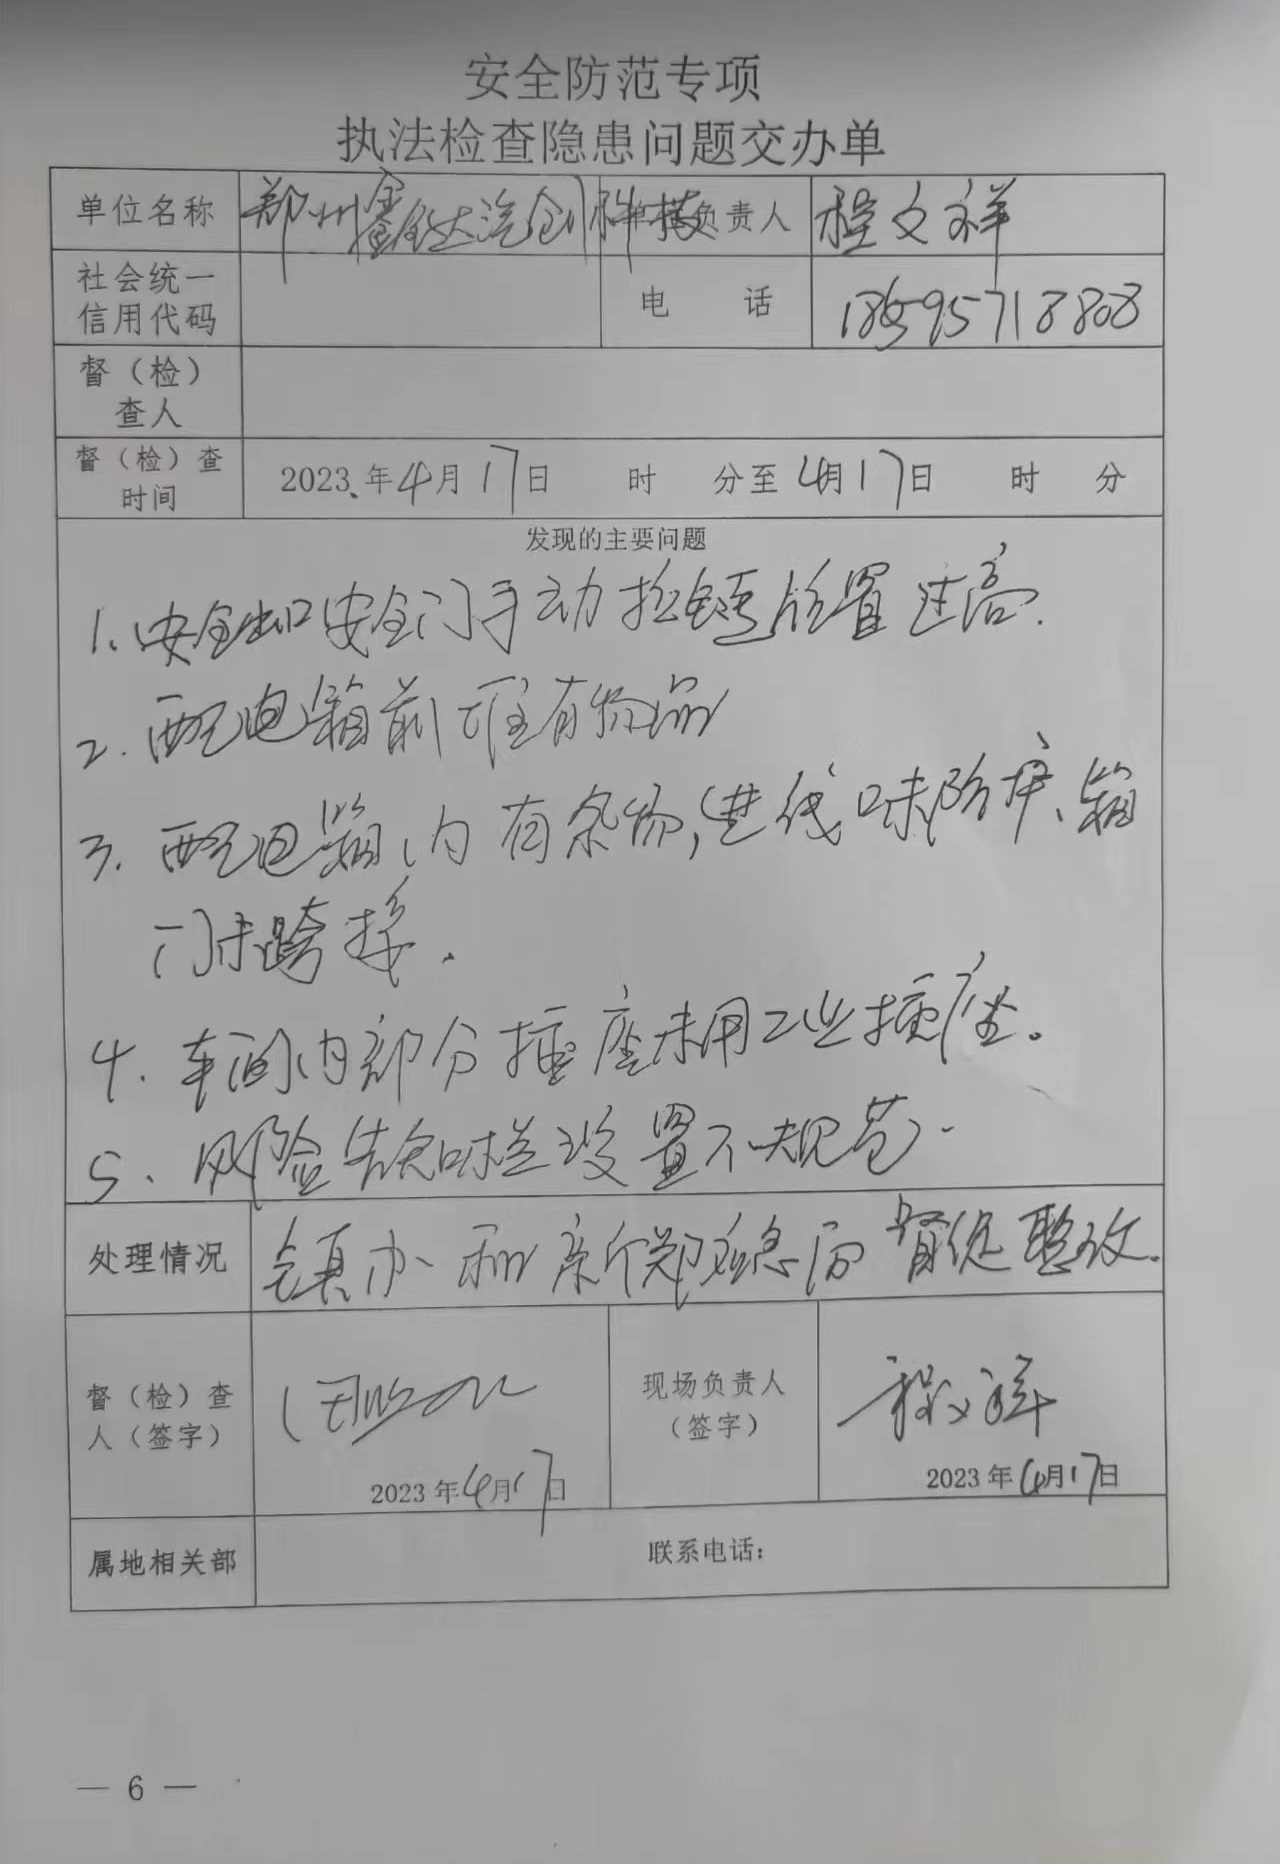 安全防范专项
执法检查隐患问题交办单
单位名称 郑州鑫钰达汽创科技 单位负责人 程文祥
社会统一信用代码 电 话 18695718808
督（检）查人
督（检）查时间 2023年4月17日 时 分至4月17日 时 分
发现的主要问题
1.安全出口安全门手动按钮位置过高.
2.配电箱前堆有物品
3.配电箱内有杂物,进线口未防护、箱
门未跨接.
4.车间内部分插座未用工业插座。
5、风险告知栏设置不规范.
处理情况 镇办和新郑应急局督促整改.
督（检）查人（签字） 现场负责人（签字） 程文祥
2023年4月17日 2023年4月17日
属地相关部 联系电话：
— 6 —